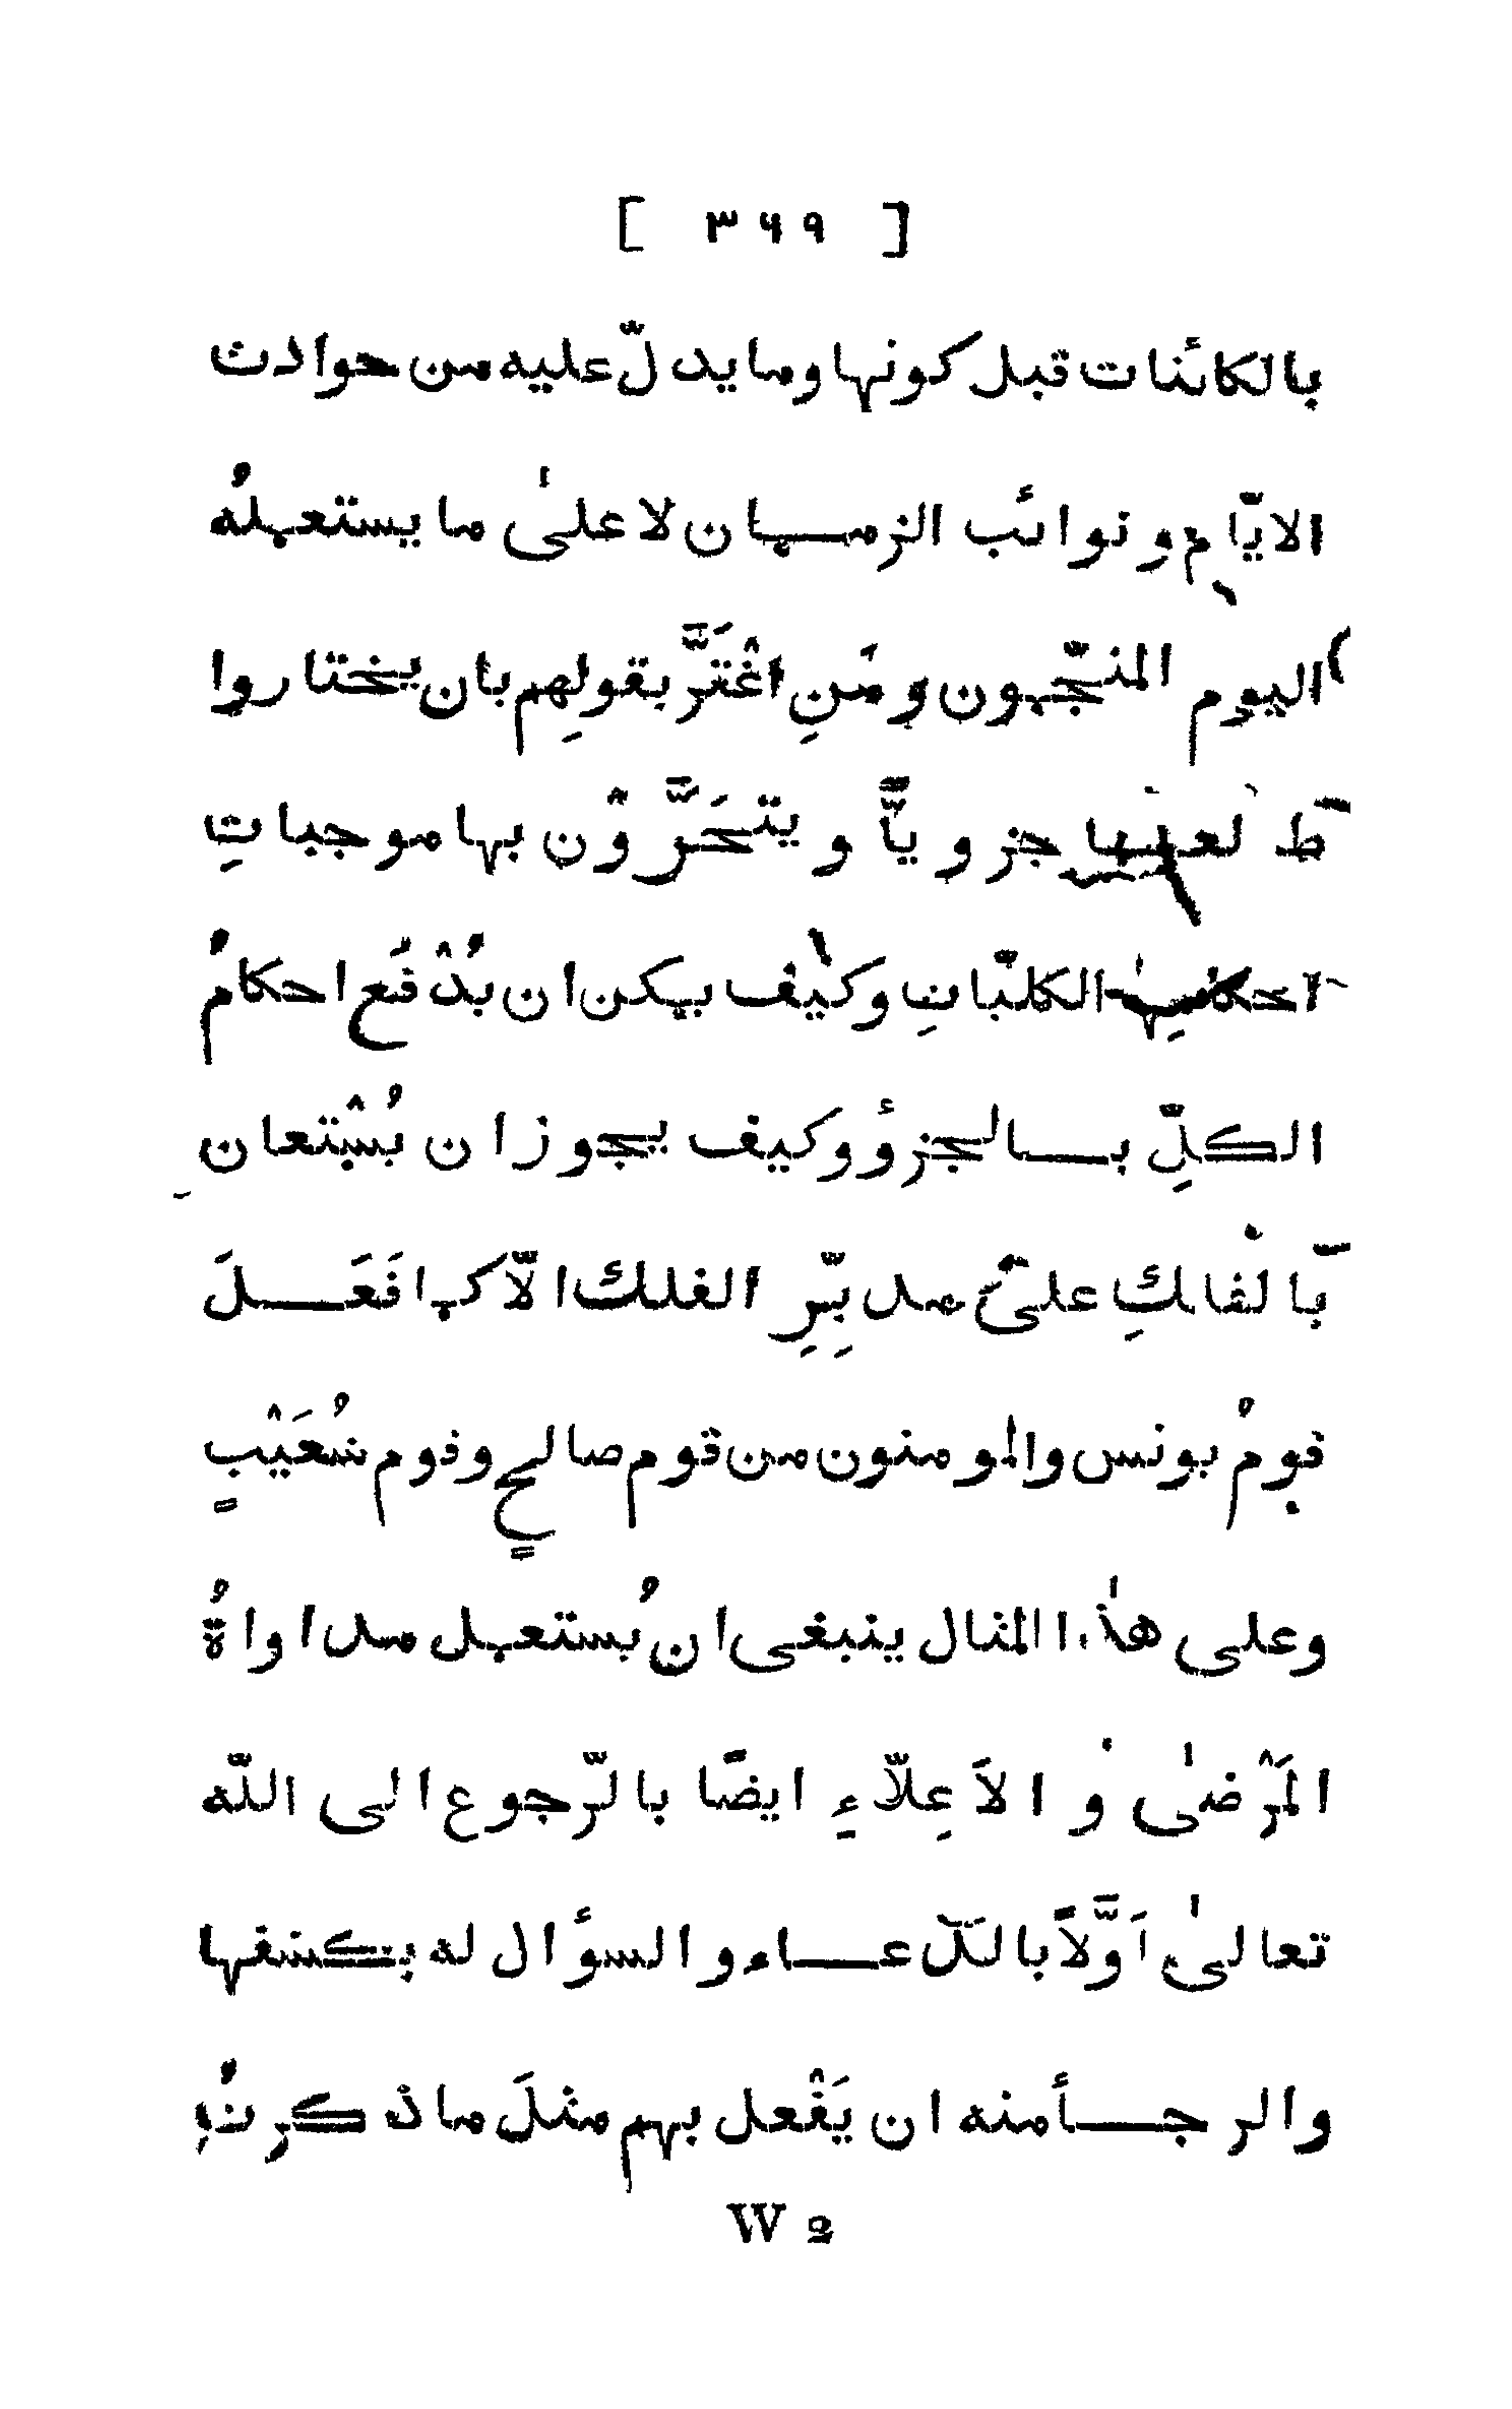 [ ٣٦٩ ]
بالكائنات قبل كونها وما يدلّ عليه من حوادث
الايّام و نوائب الزمــان لا علىٰ ما يستعملهُ
اليوم المنجّمون ومَنِ اغْتَرَّ بقولِهم بان يختاروا
جزويّاً و يتحَرَّوْن بها موجباتِ
الكلّياتِ وكيْف يمكن ان يُدْفَع احكامُ
الكلِّ بــالجزؤ وكيف يجوز ان يُسْتعان
بالفلكِ علىٰ مدبِّرِ الفلك الّا كما فَعَــلَ
قومُ يونس والمومنون من قوم صالحٍ وقوم شُعَيْبٍ
وعلى هذٰا المثال ينبغى ان يُستعمل مداواةُ
المَرْضىٰ و الاَعِلّاءِ ايضًا بالرّجوع الى اللّه
تعالىٰ اَوَّلاً بالدّعــاء والسؤال له بكشفها
والرجــأ منه ان يَفْعل بهم مثلَ ما ذكرنُا
W 2